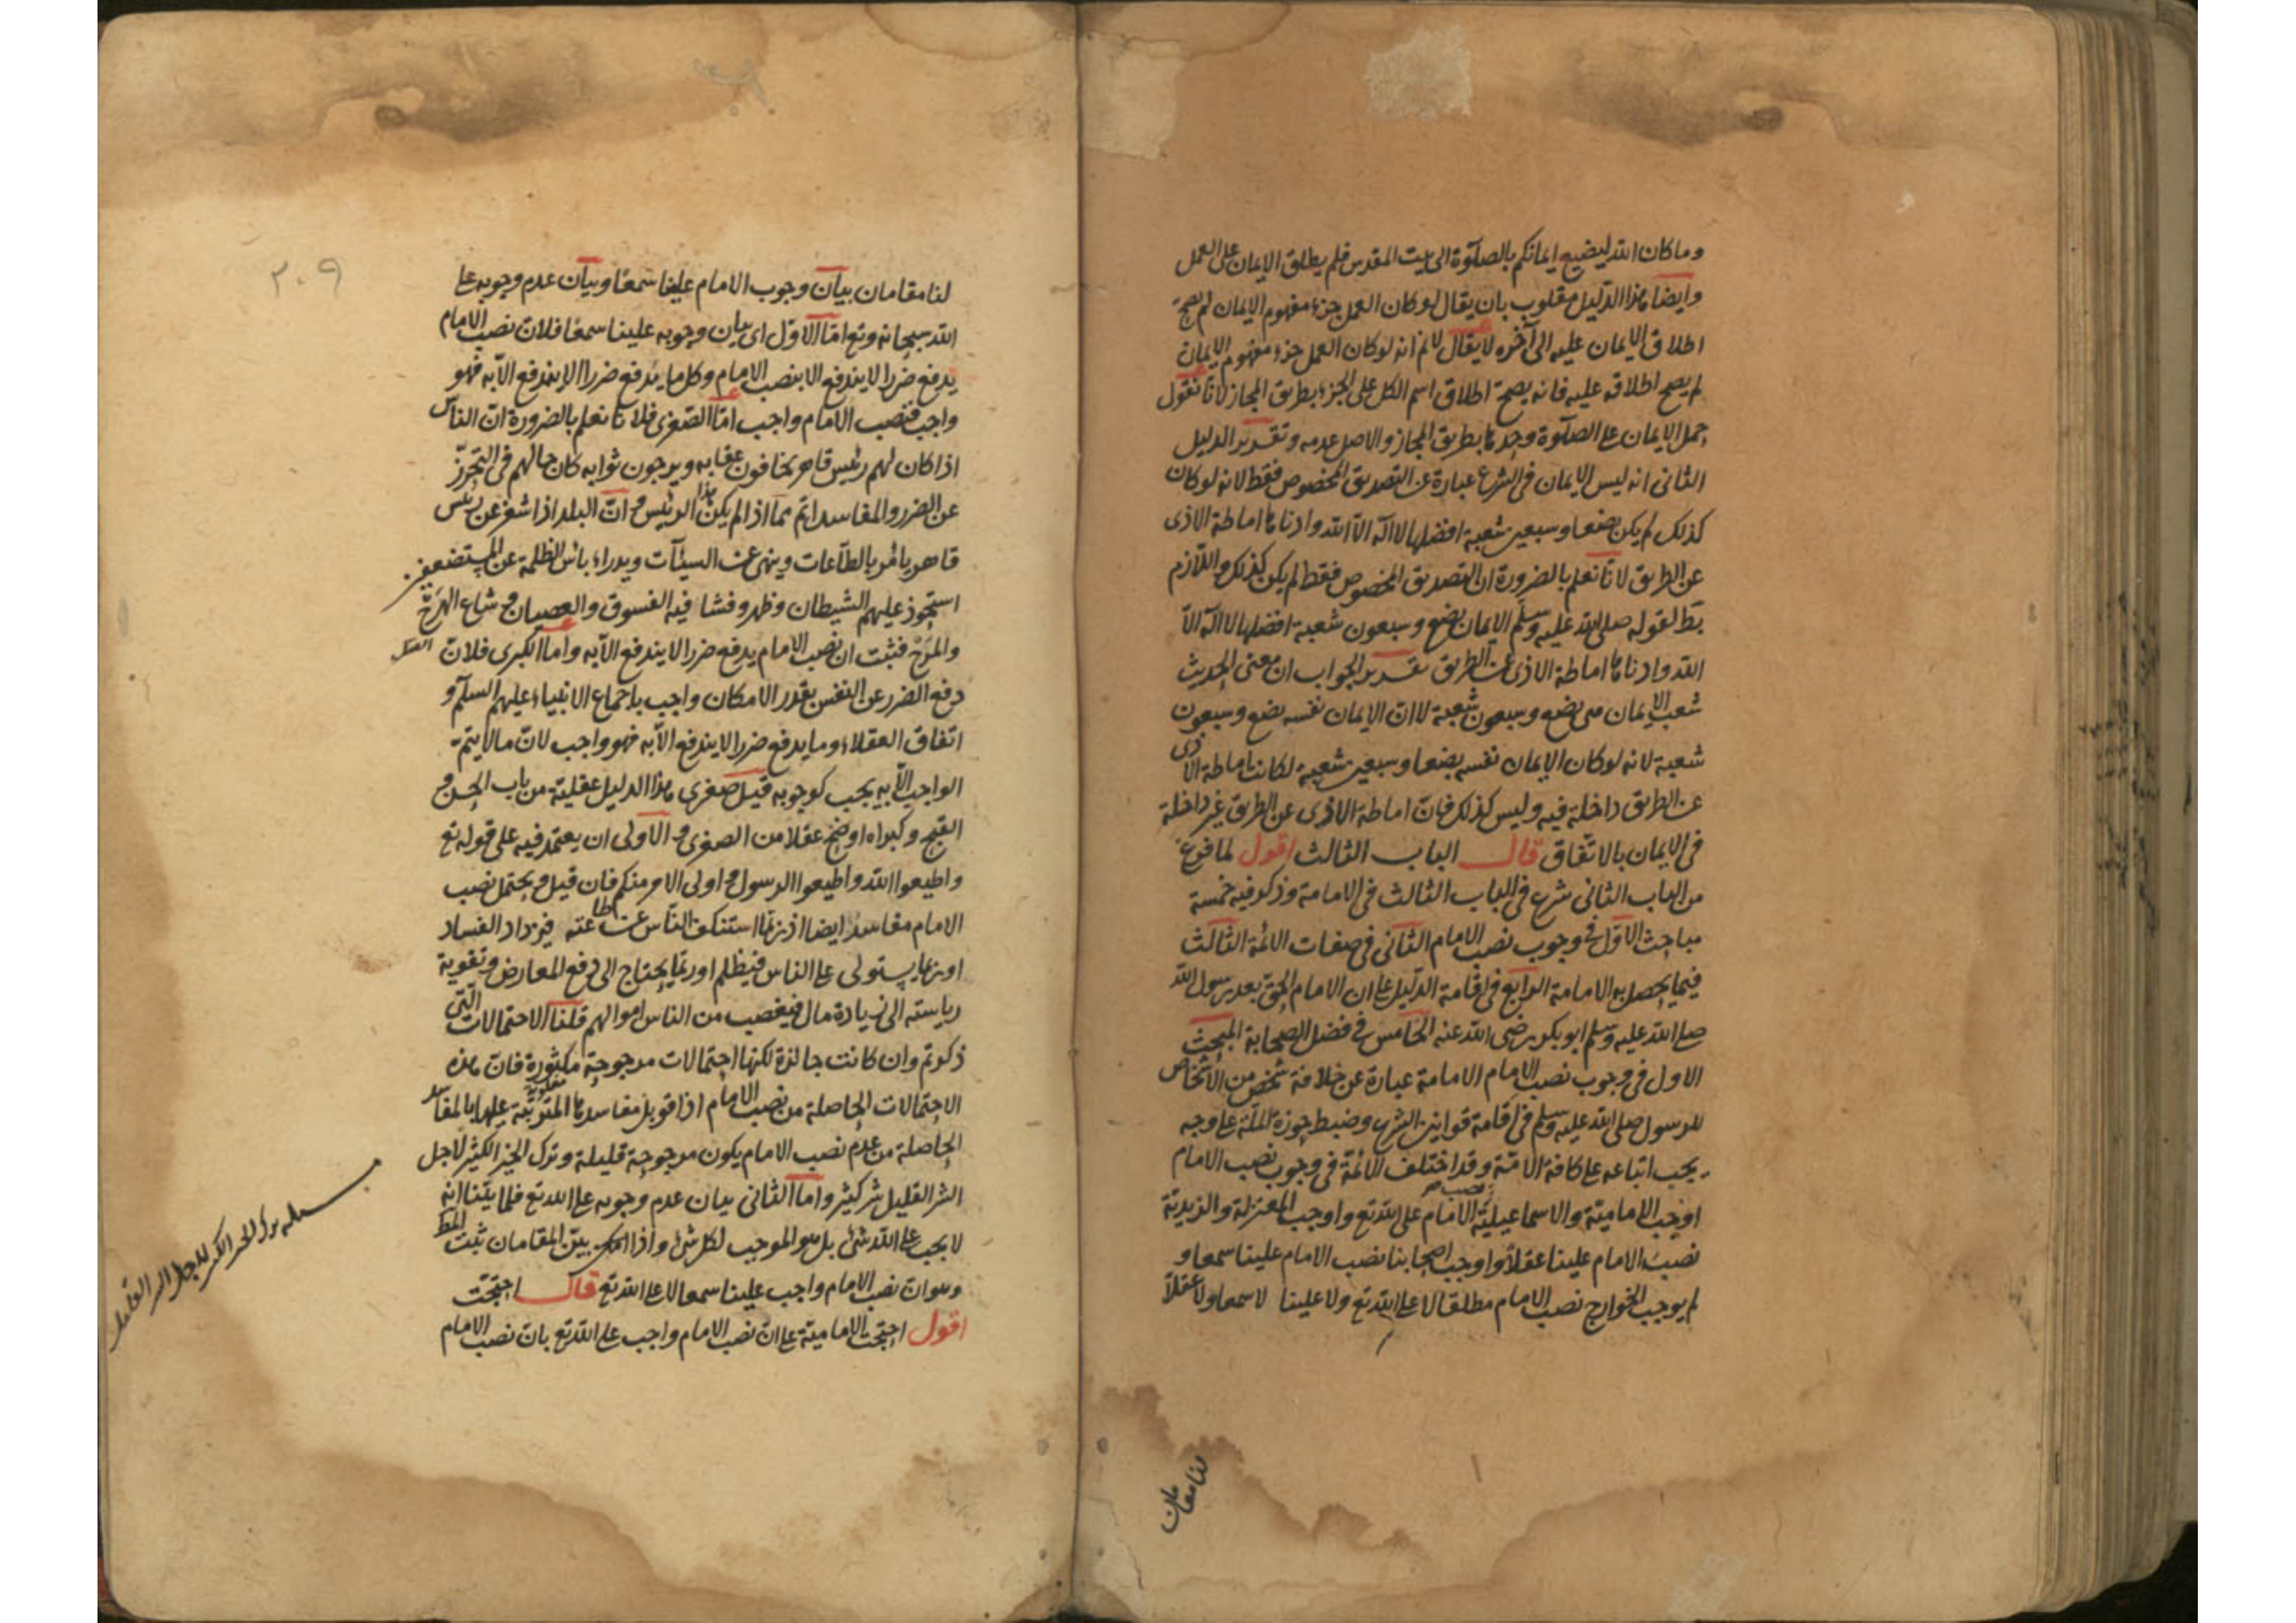 وما كان الله ليضيع ايمانكم بالصلوة الى بيت المقدس فلم يطلق الايمان على العمل
وايضا هذا الدليل مقلوب بان يقال لو كان العمل جزء مفهوم الايمان لم يصح
اطلاق الايمان عليه الى آخره لا يقال لانم انه لو كان العمل جزء مفهوم الايمان
لم يصح اطلاقه عليه فانه يصح اطلاق اسم الكل على الجزء بطريق المجاز لانا نقول
حمل الايمان على الصلوة وحدها بطريق المجاز والاصل عدمه وتقدير الدليل
الثانى انه ليس الايمان فى الشرع عبارة عن التصديق المخصوص فقط لانه لو كان
كذلك لم يكن بضعا وسبعين شعبة افضلها لا اله الا الله وادناها اماطة الاذى
عن الطريق لانا نعلم بالضرورة ان التصديق المخصوص فقط لم يكن كذلك واللازم
بط لقوله صلى الله عليه وسلم الايمان بضع وسبعون شعبة افضلها لا اله الا
الله وادناها اماطة الاذى عن الطريق تقرير الجواب ان معنى الحديث
شعب الايمان هى بضع وسبعون شعبة لا ان الايمان نفسه بضع وسبعون
شعبة لانه لو كان الايمان نفسه بضعا وسبعين شعبة لكانت اماطة الاذى
عن الطريق داخلة فيه وليس كذلك فان اماطة الاذى عن الطريق غير داخلة
فى الايمان بالاتفاق قال الباب الثالث اقول لما فرغ
من الباب الثانى شرع فى الباب الثالث فى الامامة وذكر فيه خمسة
مباحث الاول فى وجوب نصب الامام الثانى فى صفات الائمة الثالث
فيما يحصل به الامامة الرابع فى اقامة الدليل على ان الامام الحق بعد رسول الله
صلى الله عليه وسلم ابو بكر رضى الله عنه الخامس فى فضل الصحابة المبحث
الاول فى وجوب نصب الامام الامامة عبارة عن خلافة شخص من الاشخاص
للرسول صلى الله عليه وسلم فى اقامة قوانين الشرع وضبط حوزة الملة على وجه
يجب اتباعه على كافة الامة وقد اختلف الائمة فى وجوب نصب الامام
اوجب الامامية والاسماعيلية نصب الامام على الله تع واوجب المعتزلة والزيدية
نصب الامام علينا عقلا واوجب اصحابنا نصب الامام علينا سمعا و
لم يوجب الخوارج نصب الامام مطلقا لا على الله تع ولا علينا لا سمعا ولا عقلا
لنا مقامان
٢٠٩
لنا مقامان بيان وجوب الامام علينا سمعا وبيان عدم وجوبه على
الله سبحانه وتع اما الاول اى بيان وجوبه علينا سمعا فلان نصب الامام
يدفع ضررا لا يندفع الا بنصب الامام وكل ما يدفع ضررا لا يندفع الا به فهو
واجب فنصب الامام واجب اما الصغرى فلانا نعلم بالضرورة ان الناس
اذا كان لهم رئيس قاهر يخافون عقابه ويرجون ثوابه كان حالهم فى التحرز
عن الضرر والمفاسد اتم مما اذا لم يكن هذا الرئيس و ان البلد اذا شغر عن رئيس
قاهر يامر بالطاعات وينهى عن السيئات ويدراء بأس الظلمة عن المستضعفين
استحوذ عليهم الشيطان وظهر وفشا فيه الفسوق والعصيان و شاع الهرج
والمرج فثبت ان نصب الامام يدفع ضررا لا يندفع الا به واما الكبرى فلان
دفع الضرر عن النفس بقدر الامكان واجب باجماع الانبياء عليهم السلم و
اتفاق العقلاء وما يدفع ضررا لا يندفع الا به فهو واجب لان ما لا يتم
الواجب الا به يجب كوجوبه قيل صغرى هذا الدليل عقلية من باب الحسن و
القبح وكبراه اوضح عقلا من الصغرى و الاولى ان يعتمد فيه على قوله تع
واطيعوا الله واطيعوا الرسول و اولى الامر منكم فان قيل و يحتمل نصب
الامام مفاسد ايضا اذ ربما استنكف الناس عن طاعته فيزداد الفساد
او ربما يستولى على الناس فيظلم او ربما يحتاج الى دفع المعارض وتقوية
رياسته الى زيادة مال فيغصب من الناس اموالهم قلنا الاحتمالات التى
ذكرتم وان كانت جائزة لكنها احتمالات مرجوحة مكثورة فان هذه
الاحتمالات الحاصلة من نصب الامام اذا قوبل مفاسدها المترتبة عليها بالمفاسد
الحاصلة من عدم نصب الامام يكون مرجوحة قليلة وترك الخير الكثير لاجل
الشر القليل شر كثير واما الثانى بيان عدم وجوبه على الله تع فلما بينا انه
لا يجب على الله شئ بل هو الموجب لكل شئ واذا بين المقامان ثبت المط
وهو ان نصب الامام واجب علينا سمعا لا على الله تع قال احتجت
اقول احتجت الامامية على ان نصب الامام واجب على الله تع بان نصب الامام